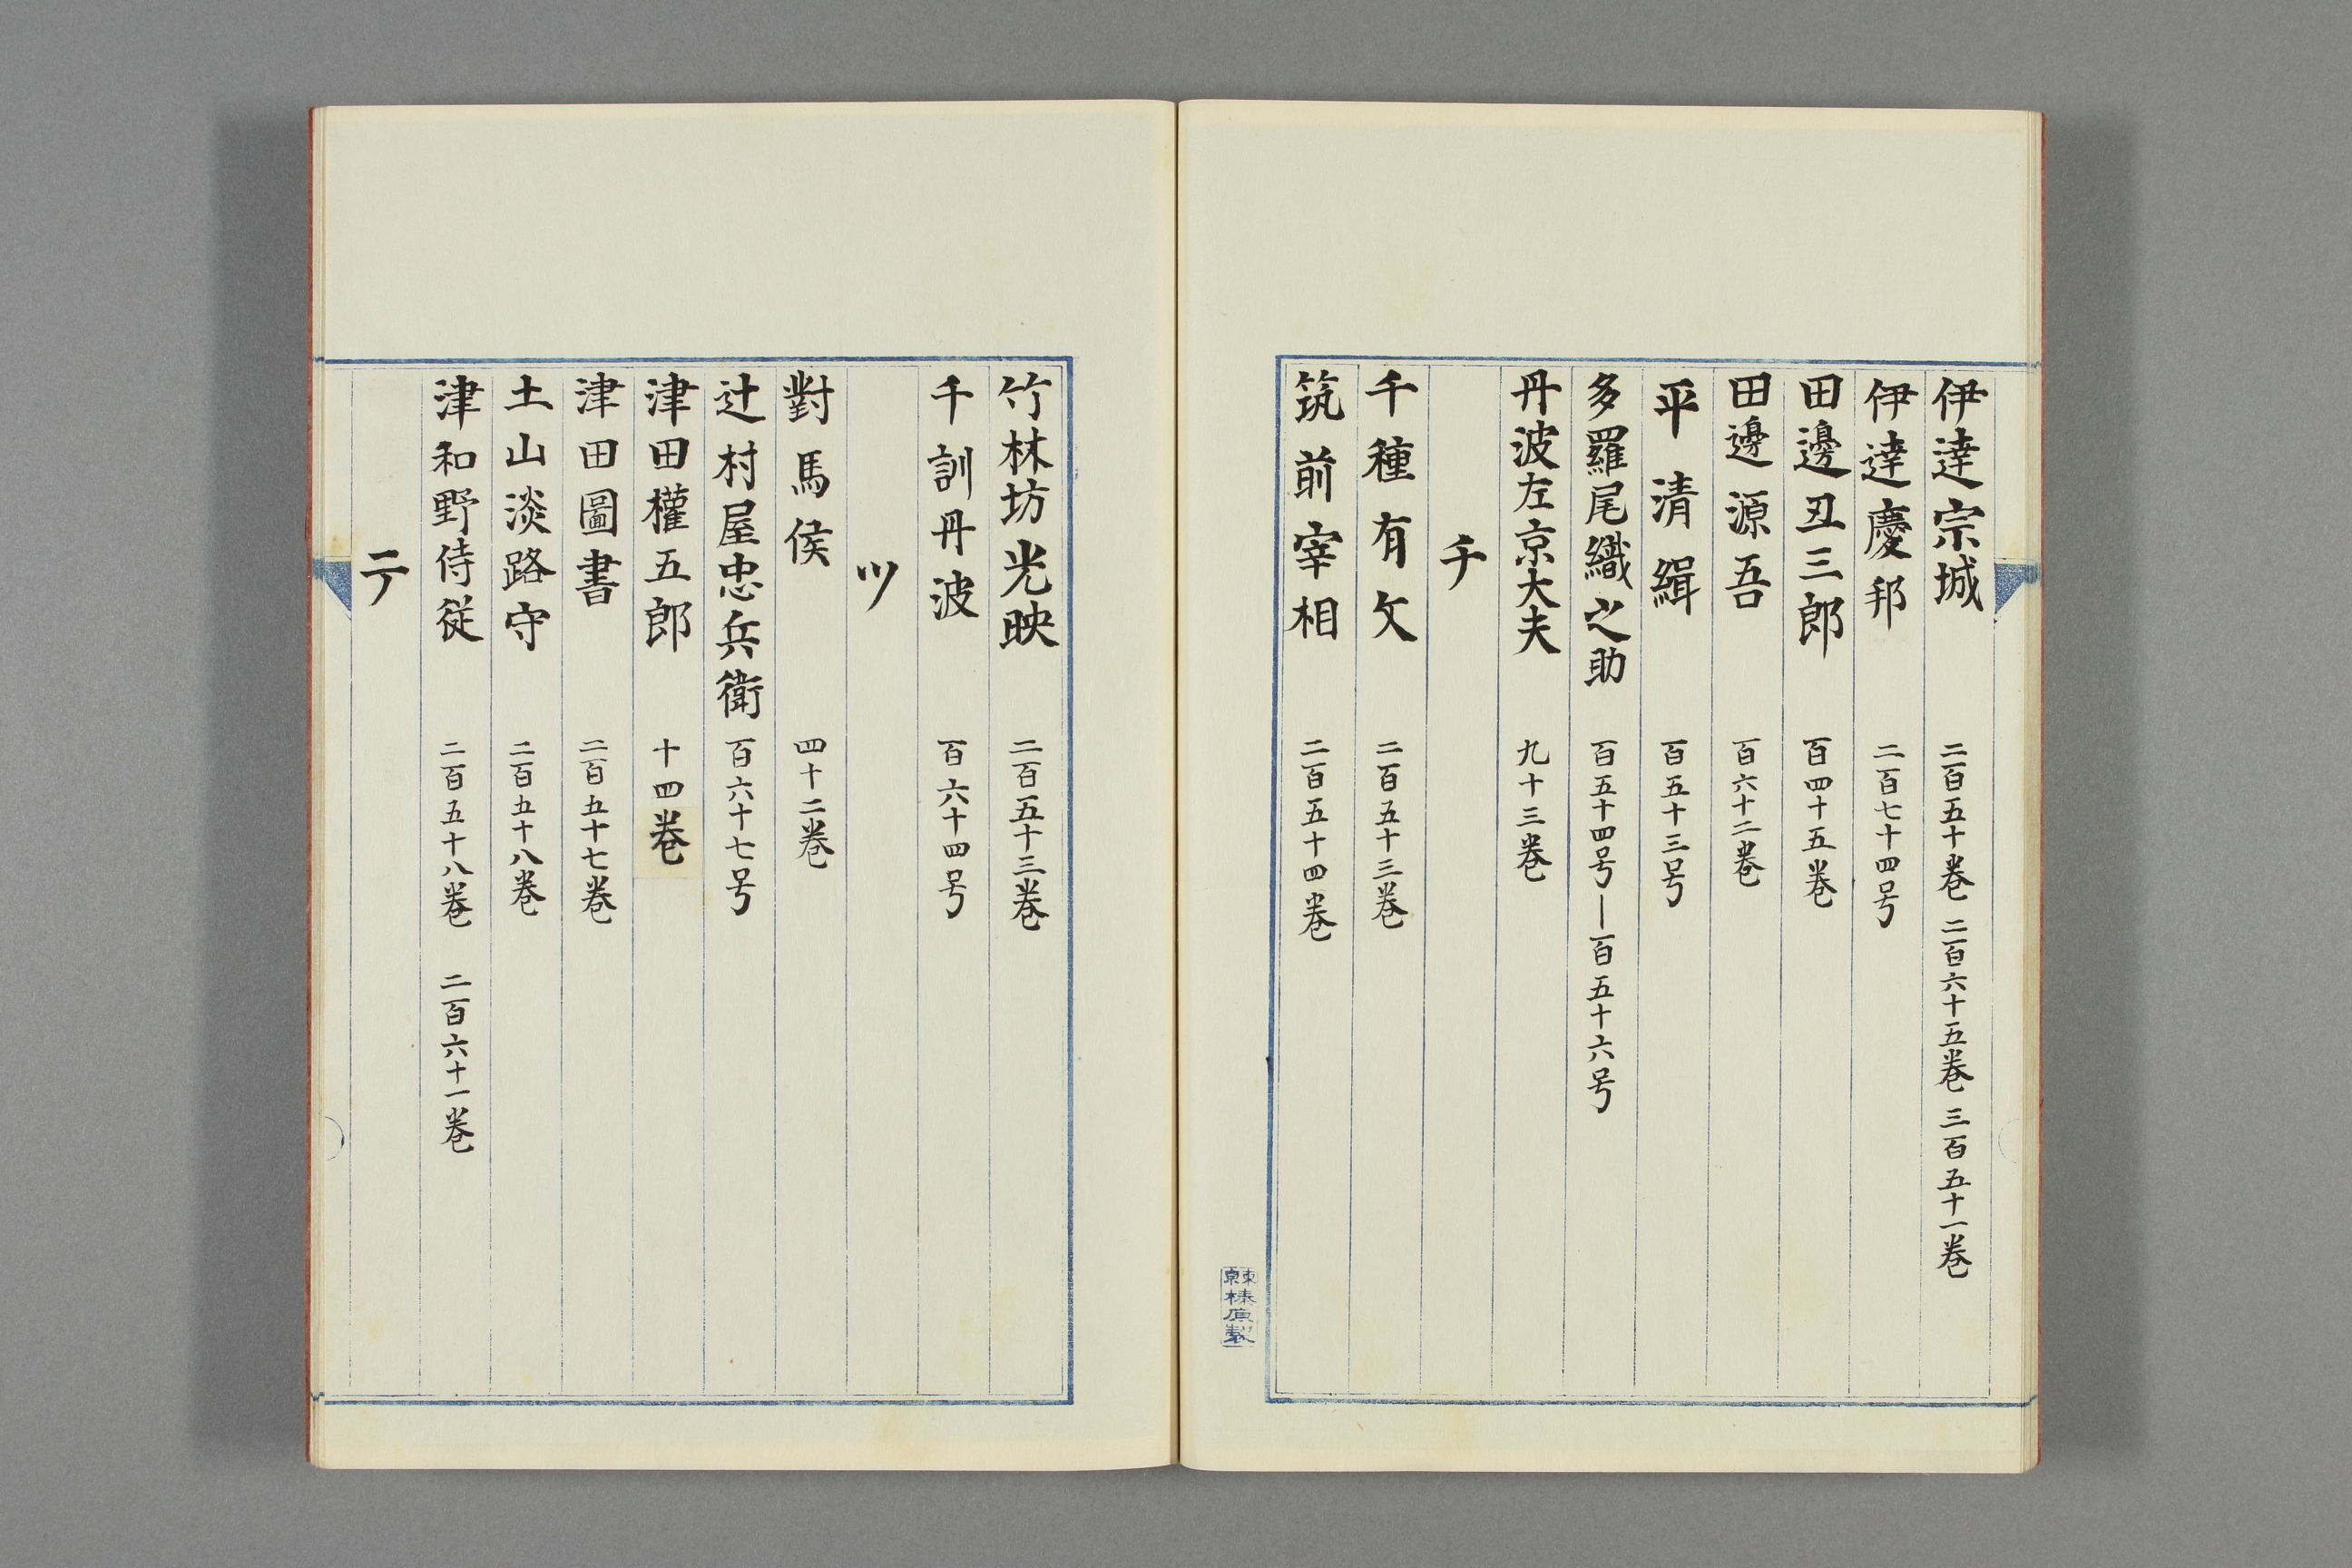 伊達宗城 二百五十巻 二百六十五巻 三百五十一巻
伊達慶邦 二百七十四号
田邊丑三郎 百四十五巻
田邊源吾 百六十二巻
平清緝 百五十三号
多羅尾織之助 百五十四号―百五十六号
丹波左京大夫 九十三巻
チ
千種有文 二百五十三巻
筑前宰相 二百五十四巻
東京榛原製
竹林坊光映 二百五十三巻
千訓丹波 百六十四号
ツ
對馬侯 四十二巻
辻村屋忠兵衛 百六十七号
津田權五郎 十四巻
津田圖書 二百五十七巻
土山淡路守 二百五十八巻
津和野侍従 二百五十八巻 二百六十一巻
テ